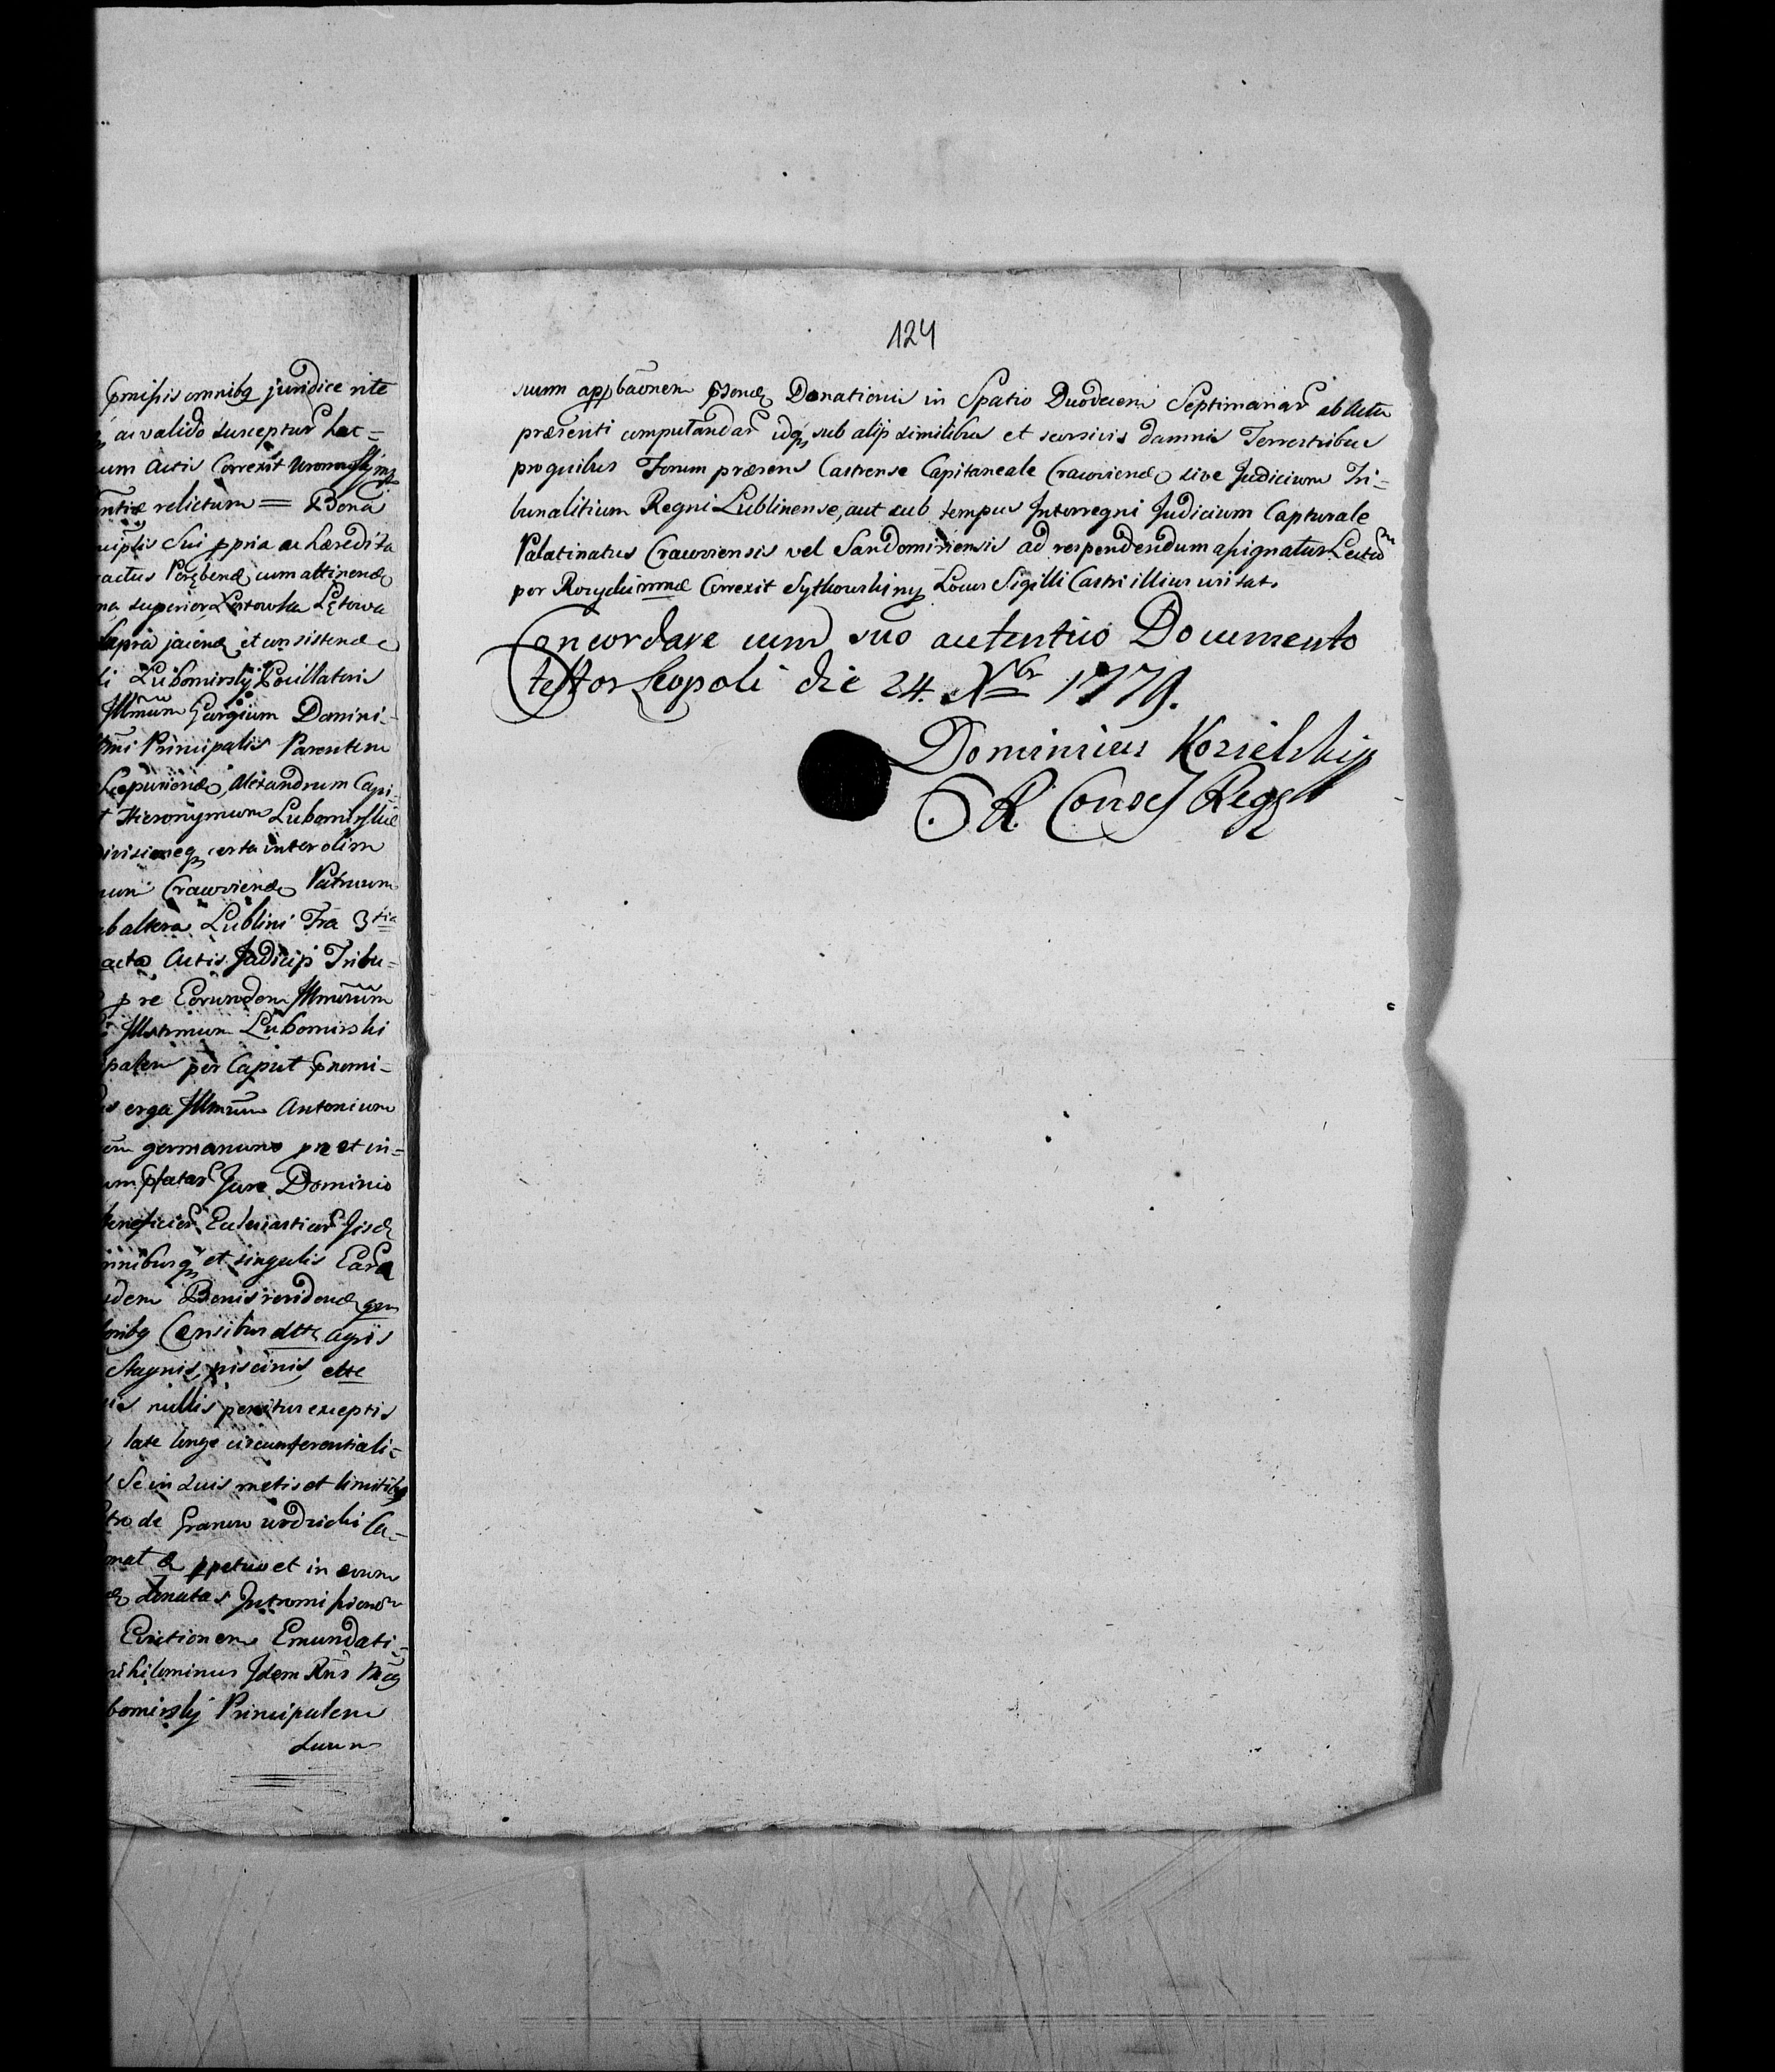 pmissis omnibq juridice rite
ac valido susceptur hac=
um Actis Correxit
ntiæ relictum = Bona
sui ppria ac hæredita
actus Porębend cum attinend
na superior Lętowka Lętowa
jacend et consistend
Lubomirsky Pocillatoris
Jllmum Georgium Domini-
Principalis Parentem
Alexandrum Capi-
Hieronymum Lubomirskie
divisioneq certa inter olim
Cracoviend Patruum
altera Lublini Fra 3tia
acto Actis Judicij Tribu=
p re Eorundem Jllmorum
Jllustrmum Lubomirski
palem per Caput pnomi-
erga Jllmum Antonium
germanum pn et in=
pfatar Jure Dominio
beneficior Ecclesiasticor Jisd
omnibusq et singulis
Bonis residend
Censibus ette agris
Stagnis piscinis ette
nullis penitus exceptis
late longe circumferentiali=
Se in suis metis et limitibq
de Granow wodzicki Ca-
ppetuo et in ævum
donatas Intromissionem
Evictionem Emundati-
nihilominus Jdem Rns Mag
bomirsky Principalem
suum
124
suum appbaonem psend Donationis in Spatio Duodecem Septimanar ab Actu
præsenti computandar idq sub alijs similibus et seorsivis damnis Terrestribus
pro quibus Forum præsens Castrense Capitaneale Cracoviend sive Judicium Tri=
bunalitium Regni Lublinense, aut sub tempus Interregni Judicium Capturale
Palatinatus Cracoviensis vel Sandomiriensis ad respondendum assignatur Lectum
per Correxit Locus Sigilli Castri illius uritat.
Concordare cum suo autentico Documento
testor Leopoli die 24. Xbr 1779.
Dominicus Kozielskip
R. Regg